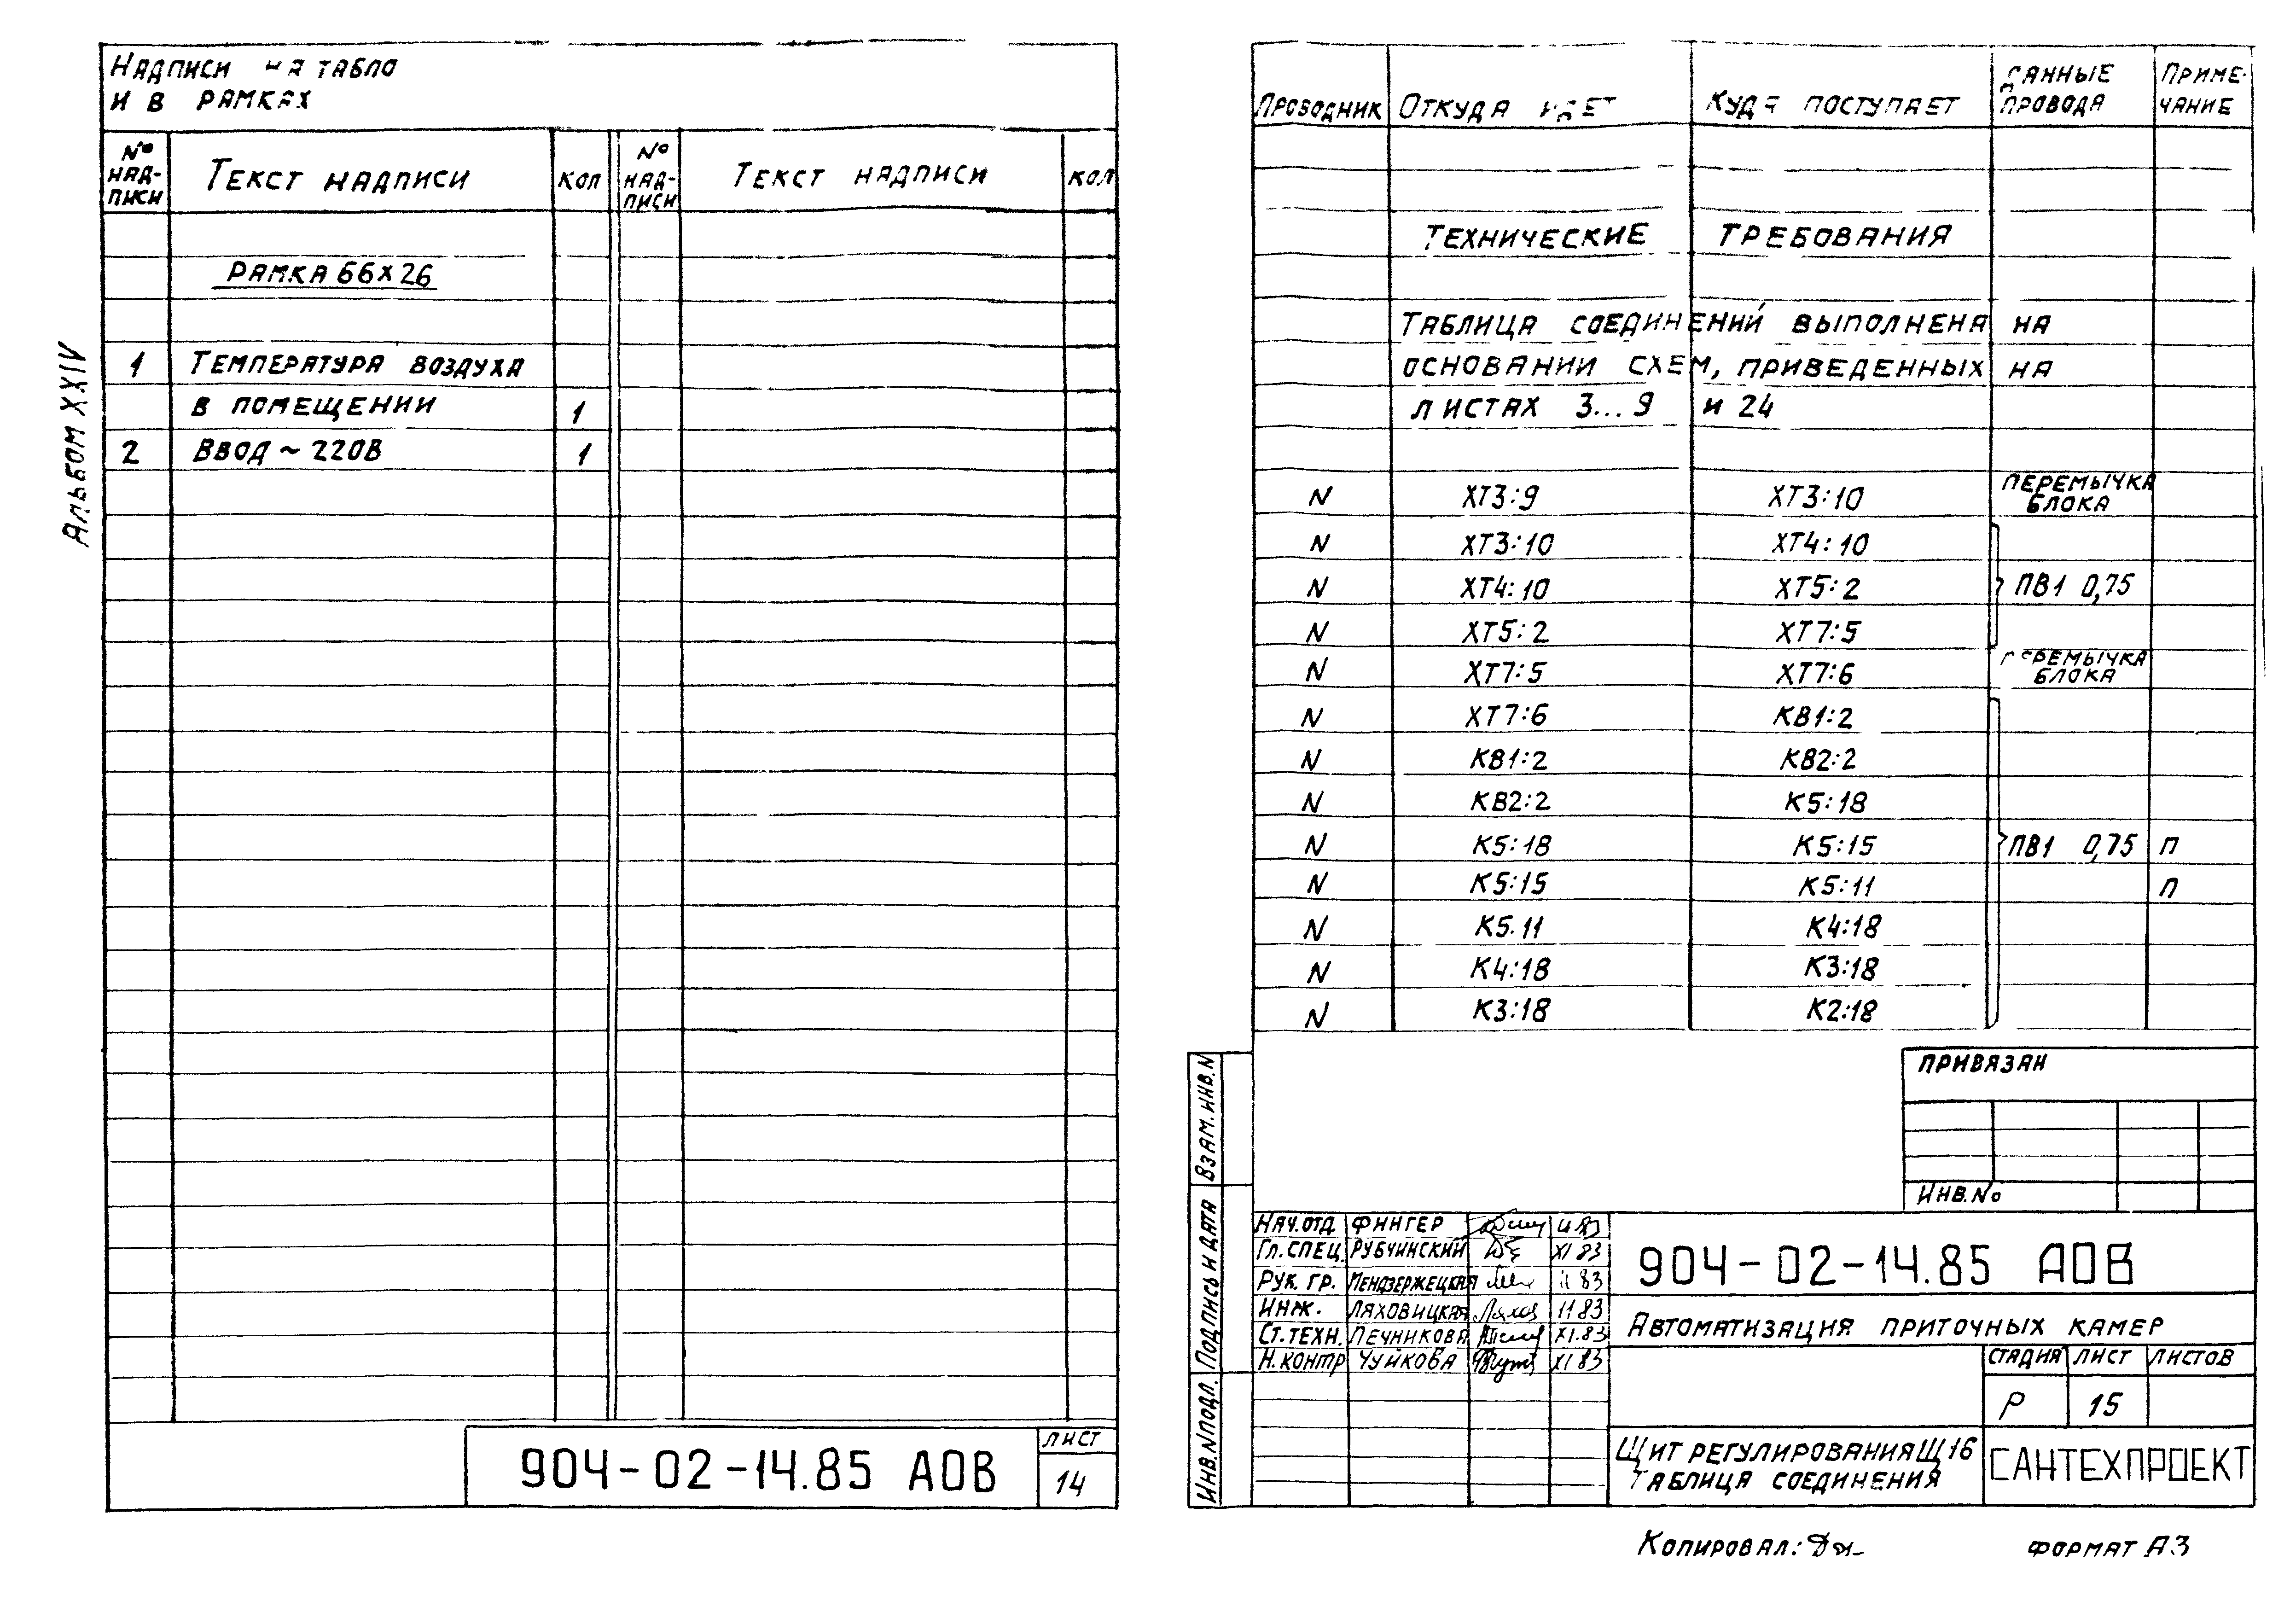 Альбом XXIV
Надписи на табло
и в рамках
№ надписи Текст надписи Кол № надписи Текст надписи Кол
Рамка 66х26
1 Температура воздуха
в помещении 1
2 Ввод ~ 220В 1
904-02-14.85 АОВ
Лист
14
Проводник Откуда идет Куда поступает Данные провода Примечание
Технические требования
Таблица соединений выполнена на
основании схем, приведенных на
листах 3...9 и 24
N ХТ3:9 ХТ3:10 Перемычка блока
N ХТ3:10 ХТ4:10
N ХТ4:10 ХТ5:2 ПВ1 0,75
N ХТ5:2 ХТ7:5
N ХТ7:5 ХТ7:6 Перемычка блока
N ХТ7:6 КВ1:2
N КВ1:2 КВ2:2
N КВ2:2 К5:18
N К5:18 К5:15 ПВ1 0,75 П
N К5:15 К5:11 П
N К5.11 К4:18
N К4:18 К3:18
N К3:18 К2:18
Привязан
Инв.No
Взам. инв.N
Подпись и дата
Инв.N подл.
Нач.отд Фингер 11 83
Гл.спец. Рубчинский XI 83
Рук. гр. Мендзержецкая 11 83
Инж. Ляховицкая 11 83
Ст.техн. Печникова XI.83
Н.контр Чуйкова XI 83
904-02-14.85 АОВ
Автоматизация приточных камер
Стадия Лист Листов
Р 15
Щит регулирования Щ16
Таблица соединения
САНТЕХПРОЕКТ
Копировал:
Формат А3